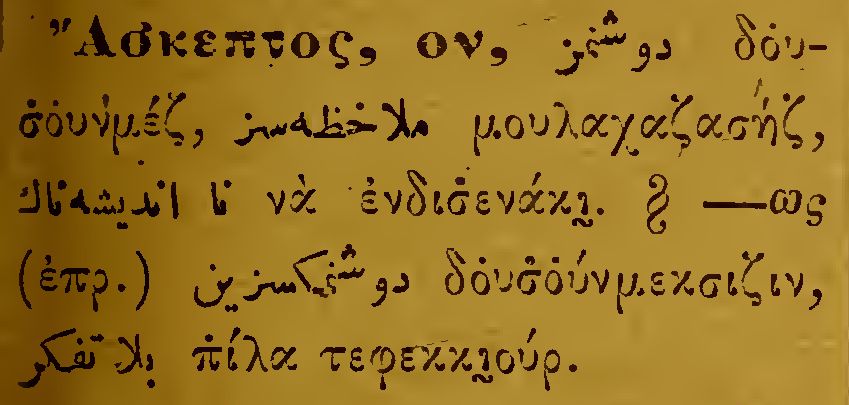 Ἄσκεπτος, ον, دوشنمز δὀυ-
σ̇ὀυνμέζ, ملاحظه‌سز μουλαχαζασήζ,
نا اندیشه‌ناك νὰ ἐνδισ̇ενάκι̰. § —ως
(ἐπρ.) دوشنمكسزین δὀυσ̇ὀύνμεκσιζιν,
بلا تفكر π̇ίλα τεφεκκι̰ούρ.